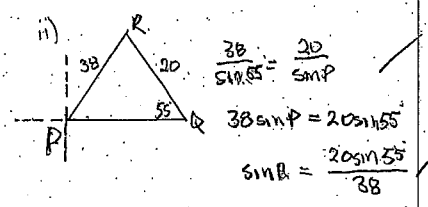 ii)
R
38
20
55
P
Q
38/sin55 = 20/sinP
38sinP = 20sin55
sinQ = 20sin55/38